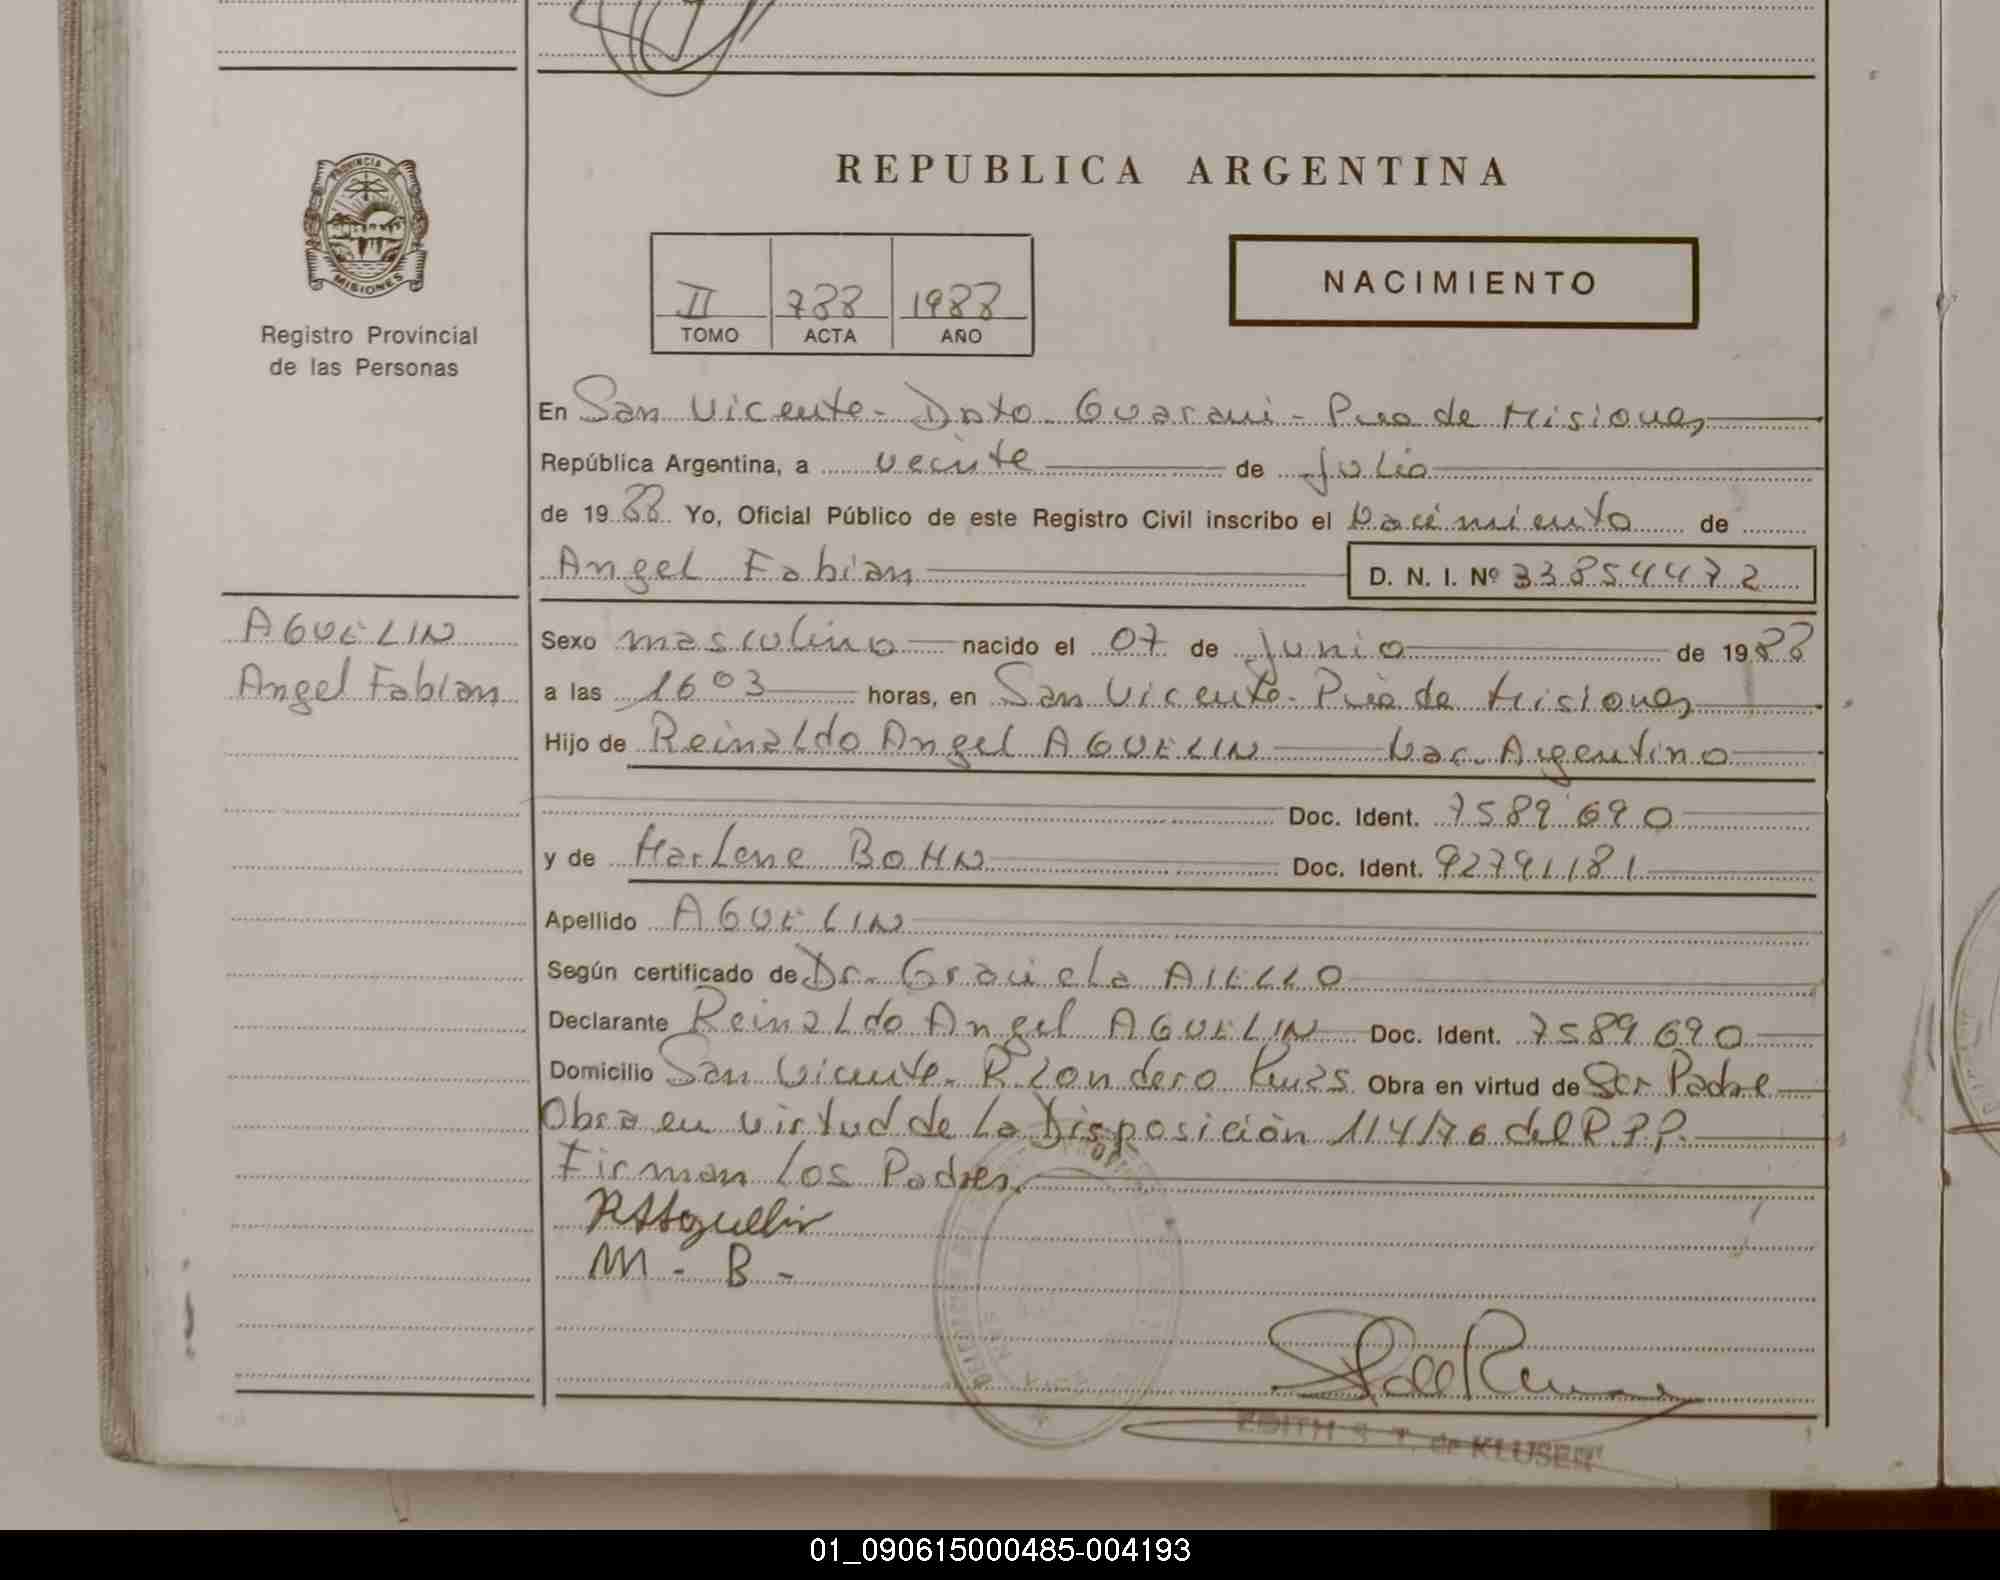 REPUBLICA ARGENTINA
PROVINCIA DE
MISIONES
Registro Provincial
de las Personas
II 788 1988
TOMO ACTA AÑO
NACIMIENTO
En San Vicente - Dpto. Guarani - Pcia de Misiones
República Argentina, a veinte de Julio
de 1988 Yo, Oficial Público de este Registro Civil inscribo el Nacimiento de
Angel Fabian D. N. I. Nº 33854472
AGUELIN
Angel Fabian
Sexo masculino nacido el 07 de Junio de 1988
a las 1603 horas, en San Vicente - Pcia de Misiones
Hijo de Reinaldo Angel AGUELIN Nac. Argentino
Doc. Ident. 7589690
y de Marlene BOHN Doc. Ident. 92791181
Apellido AGUELIN
Según certificado de Dr. Graciela AIELLO
Declarante Reinaldo Angel AGUELIN Doc. Ident. 7589690
Domicilio San Vicente - Obra en virtud de Ser Padre
Obra en virtud de La Disposición 114/76 del R.P.P.
Firman Los Padres.
M - B -
EDITH S. T. de KLUSER
01_090615000485-004193